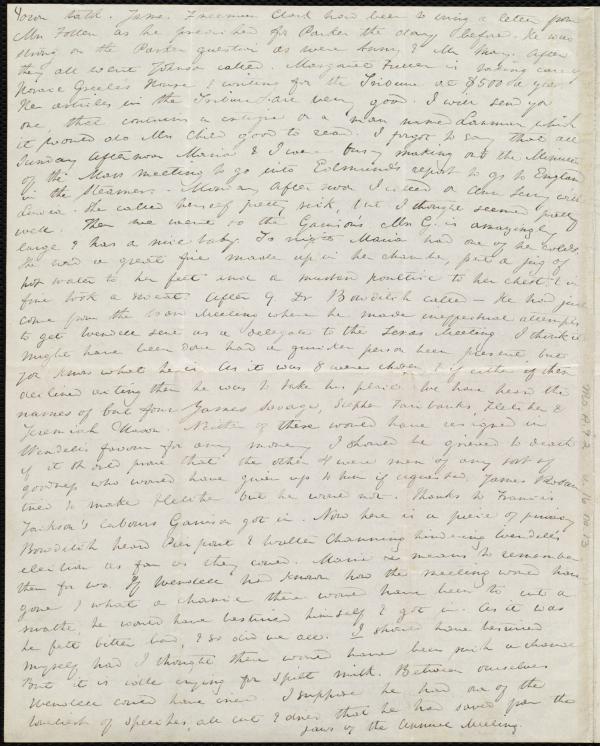 town talk. James Freeman Clark had been to bring a letter from
Mrs Follen as he preached for Parker the day before. He was
strong on the Parker question as were Anne, & Mr May. After
they all went Johnson called. Margaret Fuller is
Horace Greeley's House & writing for the Tribune at $500 a year
Her articles in the Tribune are very good. I will send you
one, that contains a critique on a man named Lanman, which
it would do Mrs Child good to read. I forgot to say that all
Sunday afternoon Maria & I were busy making out the Minutes
of the Mass meeting to go into Edmund's report to go to England
in the Steamers. Monday afternoon I called on Ann
She called herself pretty sick, but I thought seemed pretty
well. Then we went to the Garrisons Mrs G. is amazingly
large & has a nice baby. To night Maria had one of her colds.
She had a great fire made up in her chamber, put a jug of
hot water to her feet and a mustard poultice to her chest & in
fine took a sweat. After 9 Dr Bowditch called – He had just
come from the Town Meeting where he made ineffectual attempts
to get Wendell sent as a delegate to the Texas Meeting. I think it
might have been done had a quicker person been present, but
you know what he is. As it was 8 were chosen & if either of these
declined acting then he was to take his place. We have heard the
names of but four James Savage, Stephen Fairbanks, Fletcher &
Jeremiah Mason. Neither of these would have resigned in
Wendell's favour for any money. I should be grieved to death
if it should prove that the other 4 were men of any sort of
goodness who would have given up to him if requested. James
tried to make Fletcher but he would not. Thanks to Francis
Jackson's labours Garrison got in. Now here is a piece of
Bowditch heard Pierpont & Walter Channing hindering Wendell's
election as far as they could. Maria means to remember
them for wo. If Wendell had known how the meeting would have
gone & what a chance there would have been to cut a
swathe, he would have bestirred himself & got in. As it was
he felt bitter bad, & so did we all. I should have bestirred
myself had I thought there would have been such a chance
But it is idle crying for spilt milk. Between ourselves
Wendell could have cried. I suppose he had one of the
loveliest of speeches, all cut & dried that he had saved from the
jaws of the Annual Meeting.